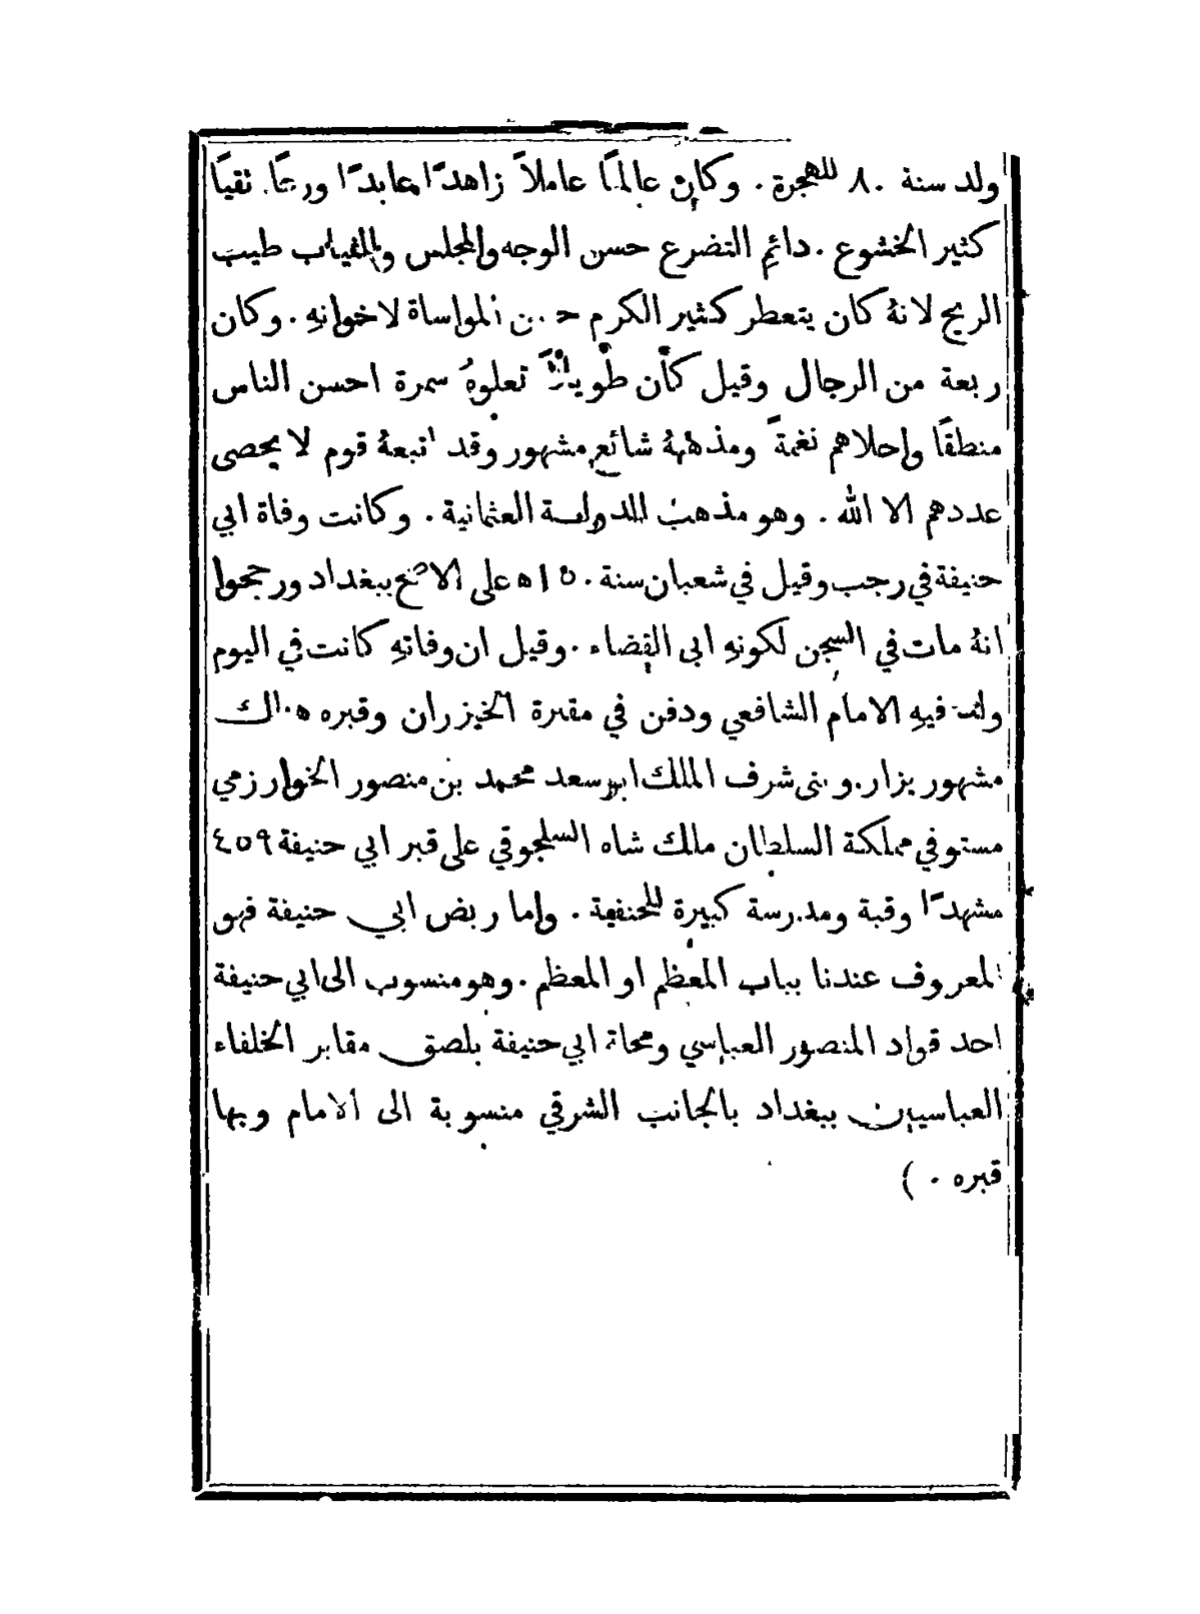 ولد سنة ٨٠ للهجرة . وكان عالمًا عاملاً زاهدًا عابدًا ورعًا تقيًا
كثير الخشوع . دائم التضرع حسن الوجه والمجلس والثياب طيب
الريح لانهُ كان يتعطر كثير الكرم حسن المواساة لاخوانهِ . وكان
ربعة من الرجال وقيل كان طويلاً تعلوهُ سمرة احسن الناس
منطقًا واحلاهم نغمةً ومذهبهُ شائع مشهور وقد اتبعهُ قوم لا يحصى
عددهم الا الله . وهو مذهب الدولة العثمانية . وكانت وفاة ابي
حنيفة في رجب وقيل في شعبان سنة ١٥٠ ه على الاصح ببغداد ورجحوا
انهُ مات في السجن لكونهِ ابى القضاء . وقيل ان وفاتهِ كانت في اليوم
ولد فيهِ الامام الشافعي ودفن في مقبرة الخيزران وقبره هناك
مشهور يزار . و بنى شرف الملك ابو سعد محمد بن منصور الخوارزمي
مستوفي مملكة السلطان ملك شاه السلجوقي على قبر ابي حنيفة ٤٥٩
مشهدًا وقبة ومدرسة كبيرة للحنفية . واما ربض ابي حنيفة فهو
المعروف عندنا بباب المعظم او المعظم . وهو منسوب الى ابي حنيفة
احد قواد المنصور العباسي ومحلة ابي حنيفة بلصق مقابر الخلفاء
العباسيين ببغداد بالجانب الشرقي منسوبة الى الامام وبها
قبره . )